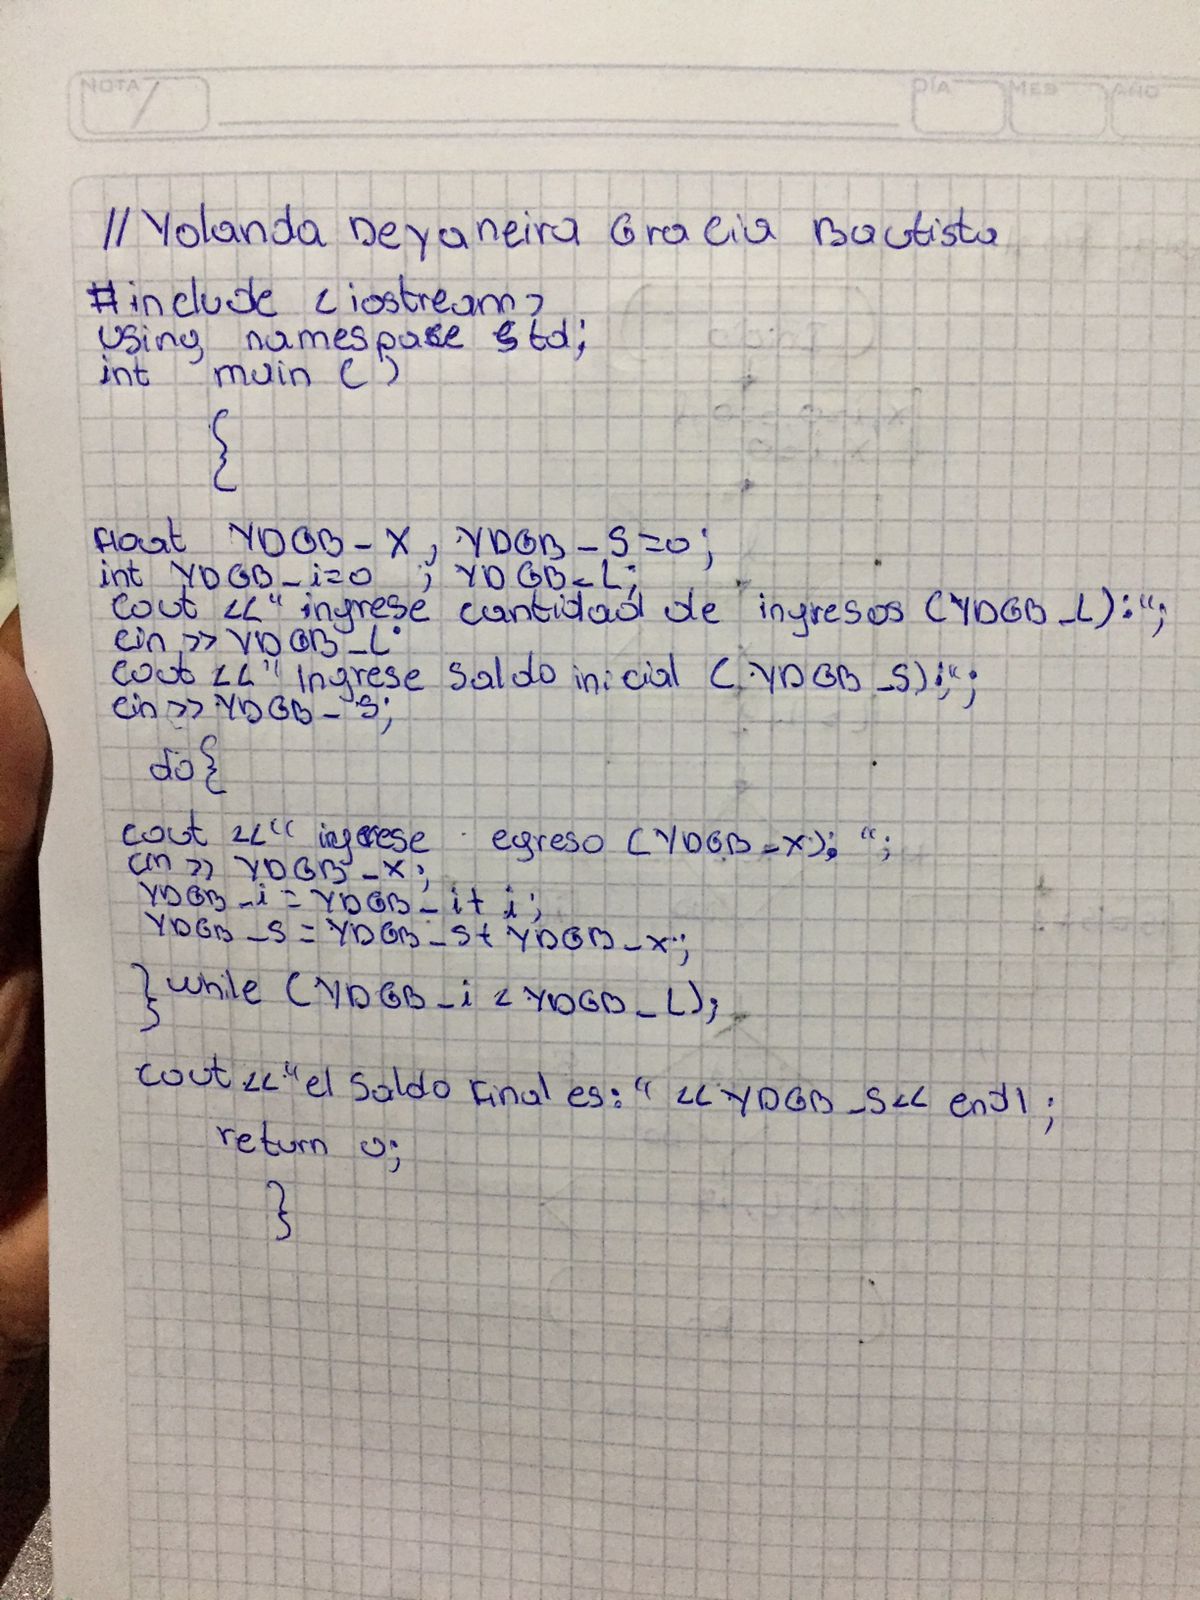 NOTA
DÍA MES AÑO
// Yolanda Deyaneira Gracia Bautista
#include <iostream>
using namespace std;
int main ( )
{
float YDGB_X, YDGB_S=0;
int YDGB_i=0 ; YDGB_L;
cout << "ingrese cantidad de ingresos (YDGB_L):";
cin >> YDGB_L;
cout << "Ingrese Saldo inicial (YDGB_S):";
cin >> YDGB_S;
do {
cout << "ingrese egreso (YDGB_X): ";
cin >> YDGB_X;
YDGB_i = YDGB_i + i;
YDGB_S = YDGB_S + YDGB_X;
} while (YDGB_i < YDGB_L);
cout << "el Saldo Final es: " << YDGB_S << endl ;
return 0;
}